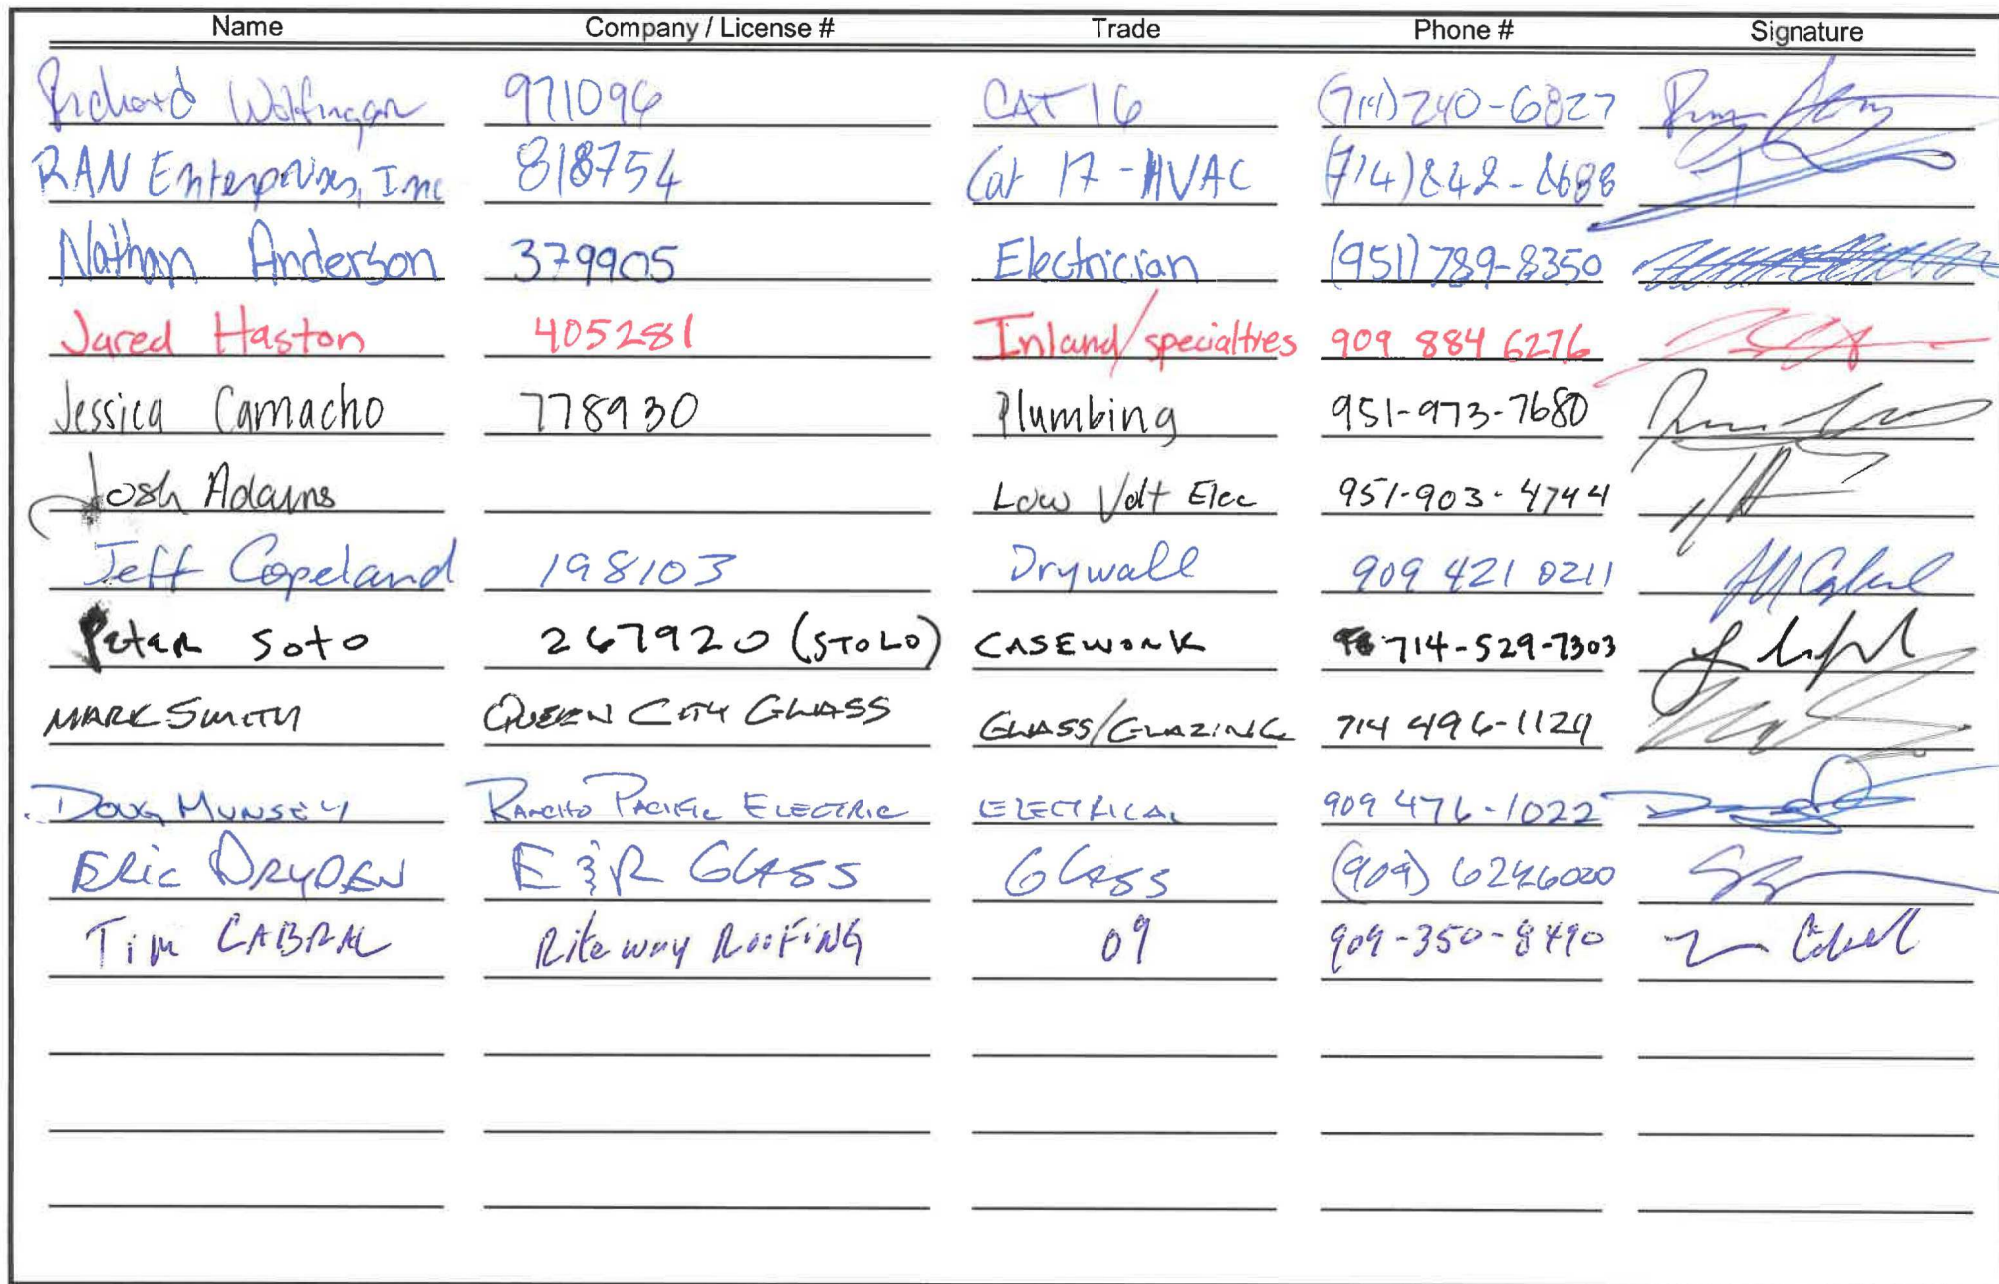 Name Company / License # Trade Phone # Signature
Richard Wolfingar 971096 CAT 16 (714) 240-6827
RAN Enterprises, Inc 818754 Cat 17 - HVAC (714) 842-8688
Nathan Anderson 379905 Electrician (951) 789-8350
Jared Haston 405281 Inland/specialties 909 884 6276
Jessica Camacho 778930 Plumbing 951-973-7680
Josh Adams Low Volt Elec 951-903-4744
Jeff Copeland 198103 Drywall 909 421 0211
Peter Soto 267920 (STOLO) CASEWORK 714-529-7303
MARK SMITH QUEEN CITY GLASS GLASS/GLAZING 714 496-1129
DOUG MUNSEY RANCHO PACIFIC ELECTRIC ELECTRICAL 909 476-1022
ERIC DRYDEN E & R GLASS GLASS (909) 6246020
Tim CABRAL Rite way ROOFING 09 909-350-8490